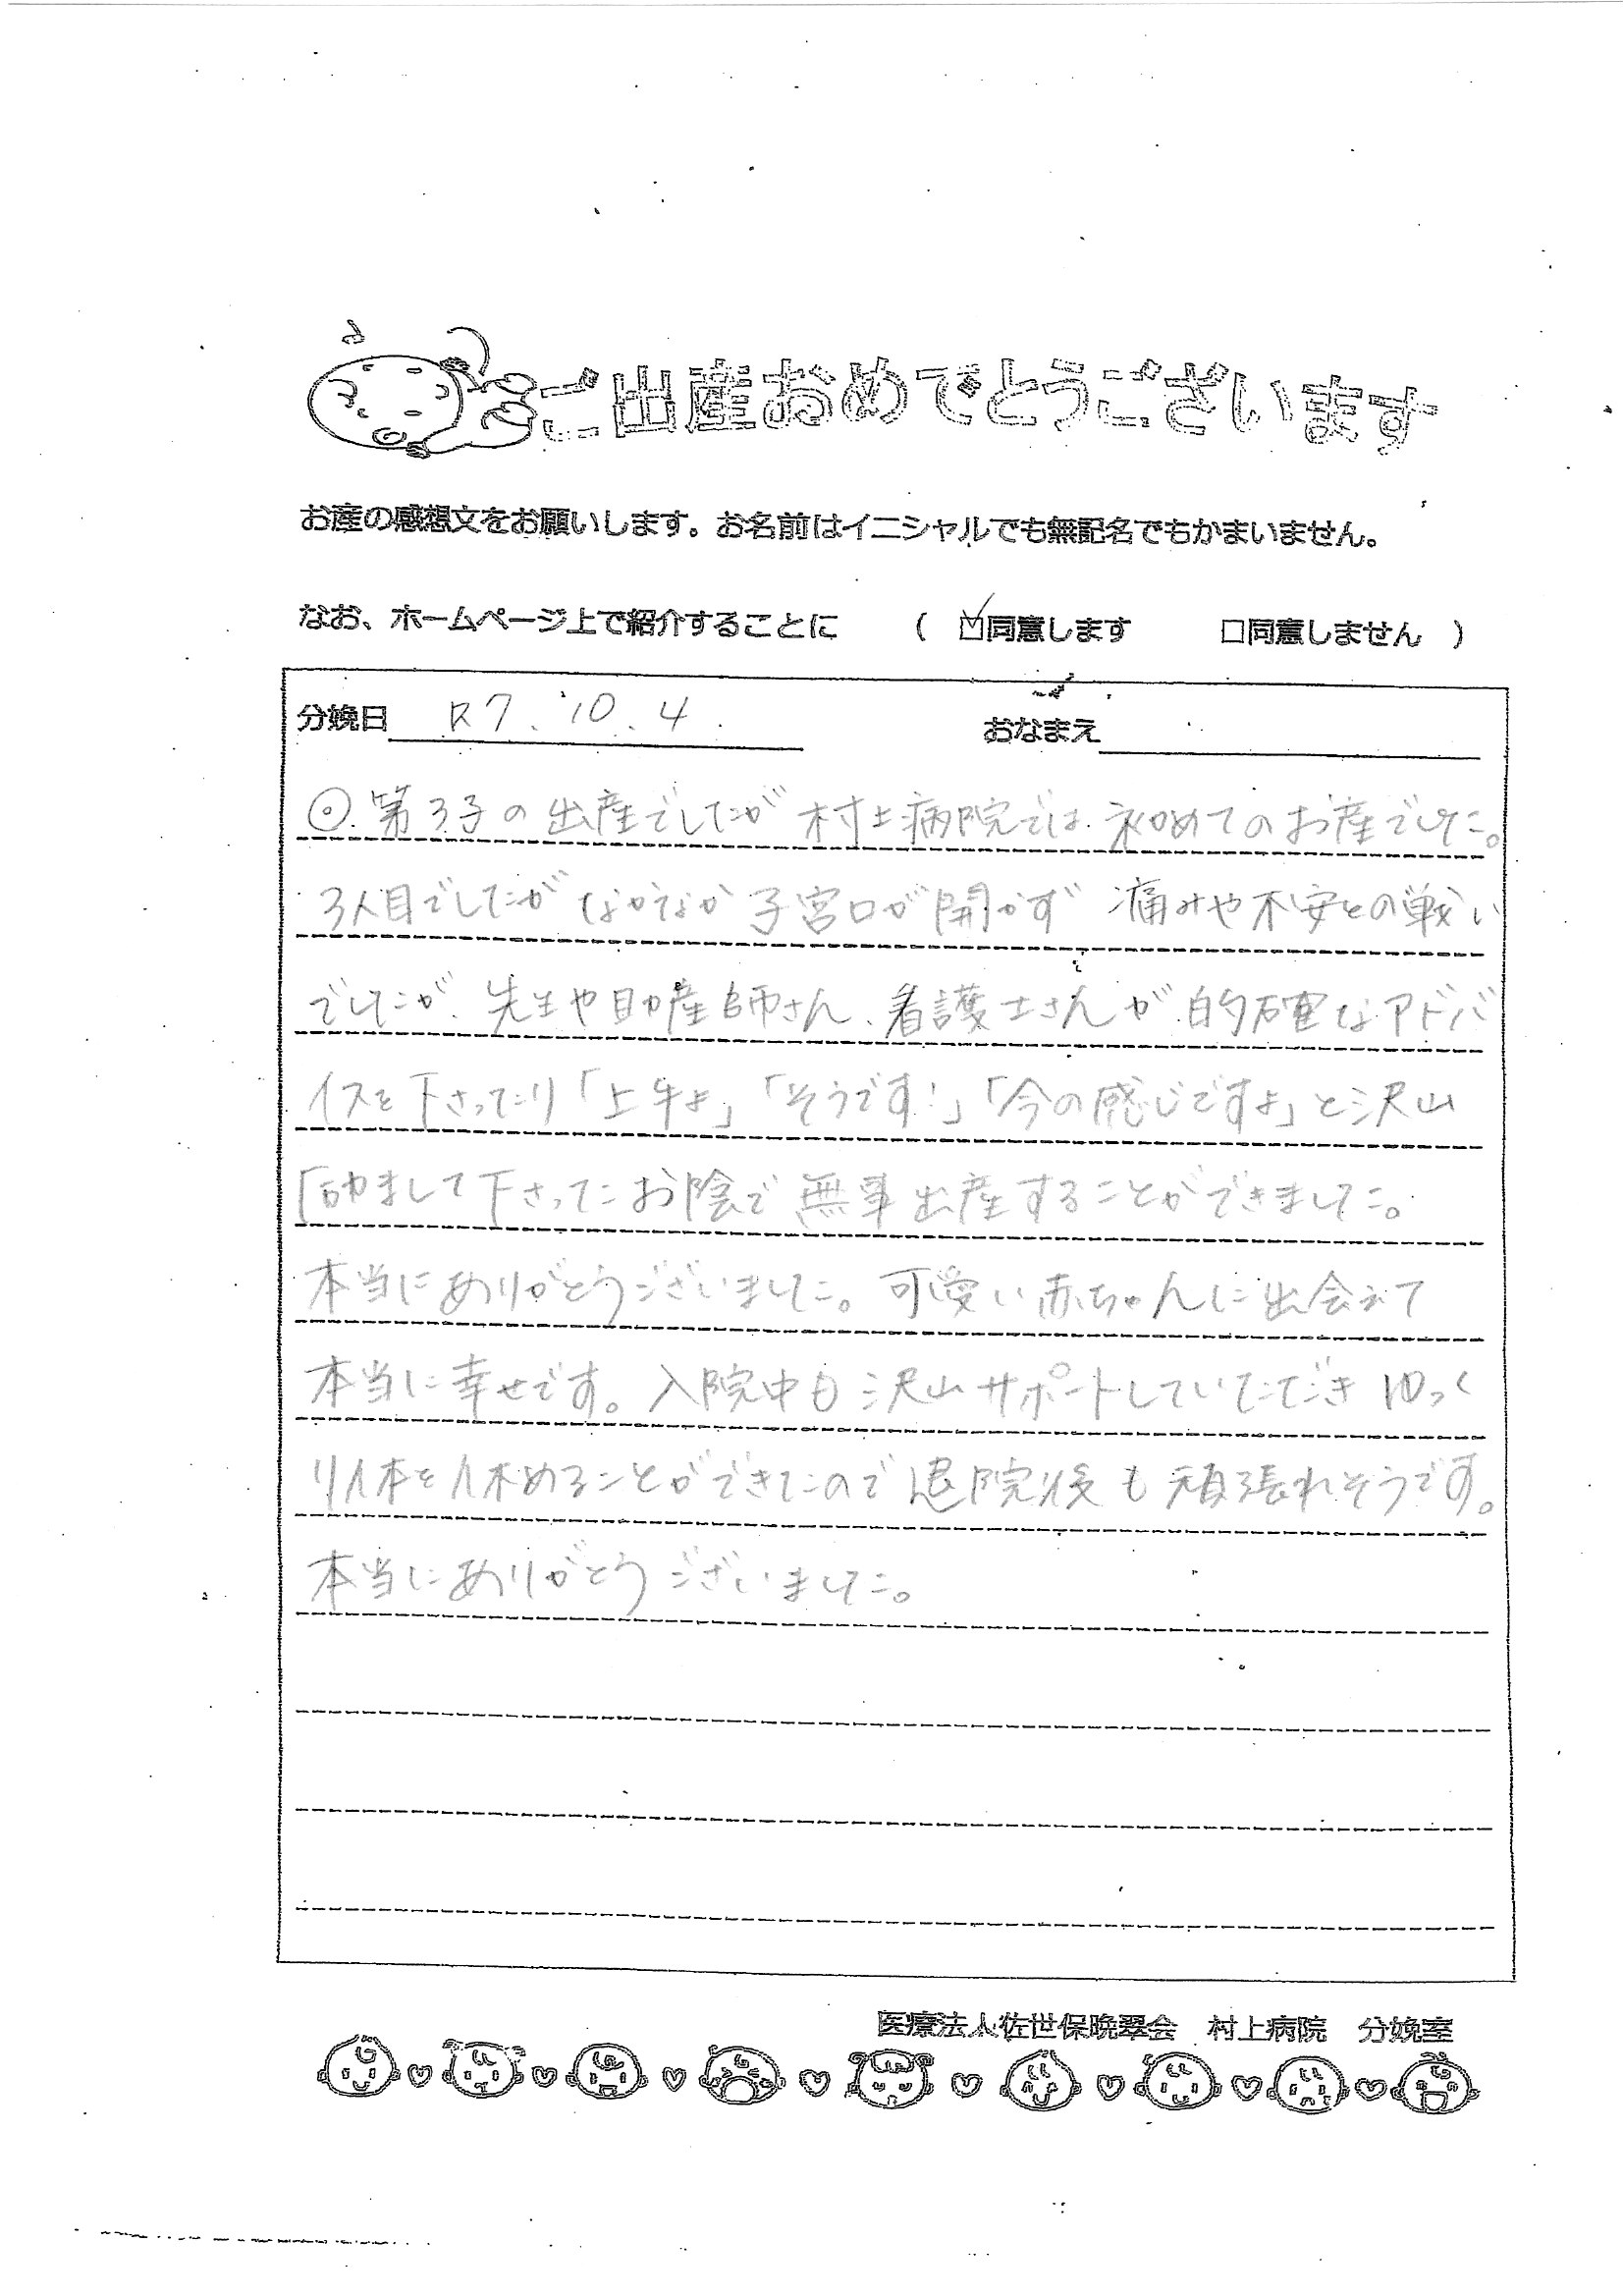 ご出産おめでとうございます
お産の感想文をお願いします。お名前はイニシャルでも無記名でもかまいません。
なお、ホームページ上で紹介することに （ ☑同意します □同意しません ）
分娩日 R7.10.4. おなまえ
◎.第3子の出産でしたが村上病院では初めてのお産でした。
3人目でしたがなかなか子宮口が開かず 痛みや不安との戦い
でしたが、先生や助産師さん、看護士さんが的確なアドバ
イスを下さったり「上手よ」「そうです!」「今の感じですよ」と沢山
励まして下さったお陰で無事出産することができました。
本当にありがとうございました。可愛い赤ちゃんに出会えて
本当に幸せです。入院中も沢山サポートしていただき ゆっく
り体を休めることができたので退院後も頑張れそうです。
本当にありがとうございました。
医療法人佐世保晩翠会 村上病院 分娩室